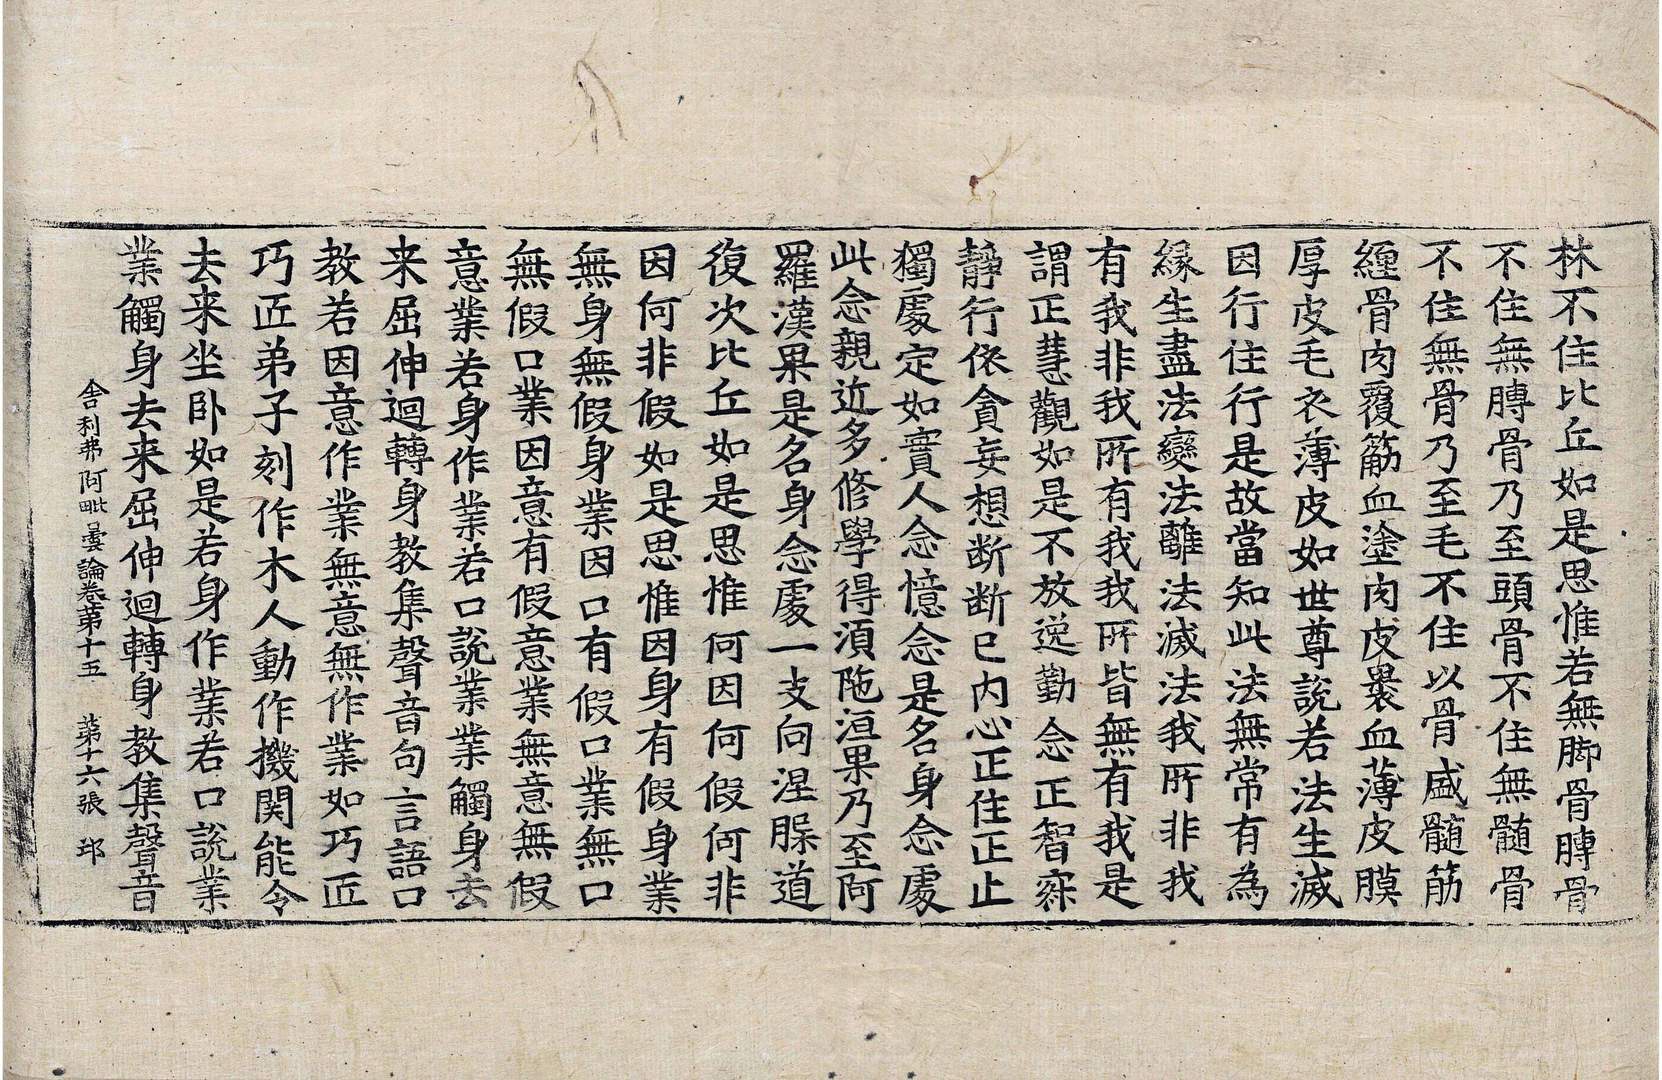 林不住比丘如是思惟若無脚骨膞骨
不住無膞骨乃至頭骨不住無髓骨
不住無骨乃至毛不住以骨盛髓筋
纏骨肉覆筋血塗肉皮褁血薄皮膜
厚皮毛衣薄皮如世尊說若法生滅
因行住行是故當知此法無常有為
緣生盡法變法離法滅法我所非我
有我非我所有我我所皆無有我是
謂正慧觀如是不放逸勤念正智寂
靜行依貪妄想断断已内心正住正止
獨處定如實人念憶念是名身念處
此念親近多修學得須陁洹果乃至阿
羅漢果是名身念處一支向涅槃道
復次比丘如是思惟何因何假何非
因何非假如是思惟因身有假身業
無身無假身業因口有假口業無口
無假口業因意有假意業無意無假
意業若身作業若口說業業觸身去
来屈伸迴轉身教集聲音句言語口
教若因意作業無意無作業如巧匠
巧匠弟子刻作木人動作機関能令
去来坐卧如是若身作業若口說業
業觸身去来屈伸迴轉身教集聲音
舎利弗阿毗曇論卷苐十五 苐十六張 邙